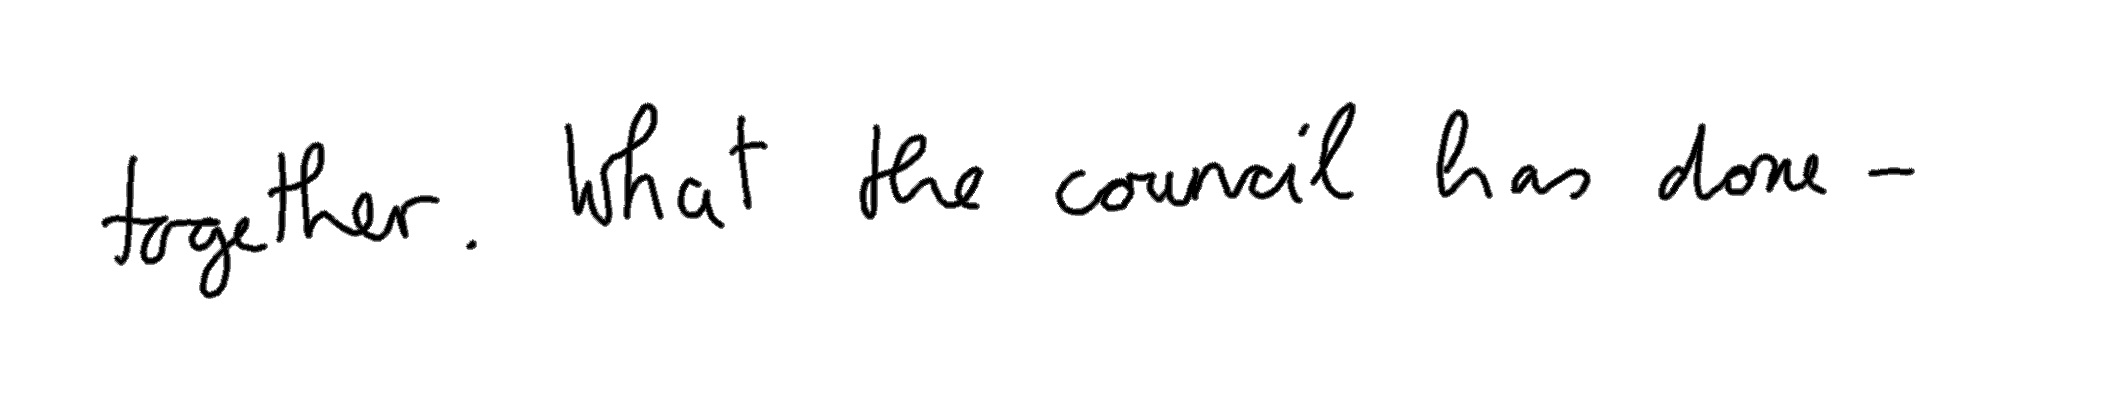 together. What the council has done -